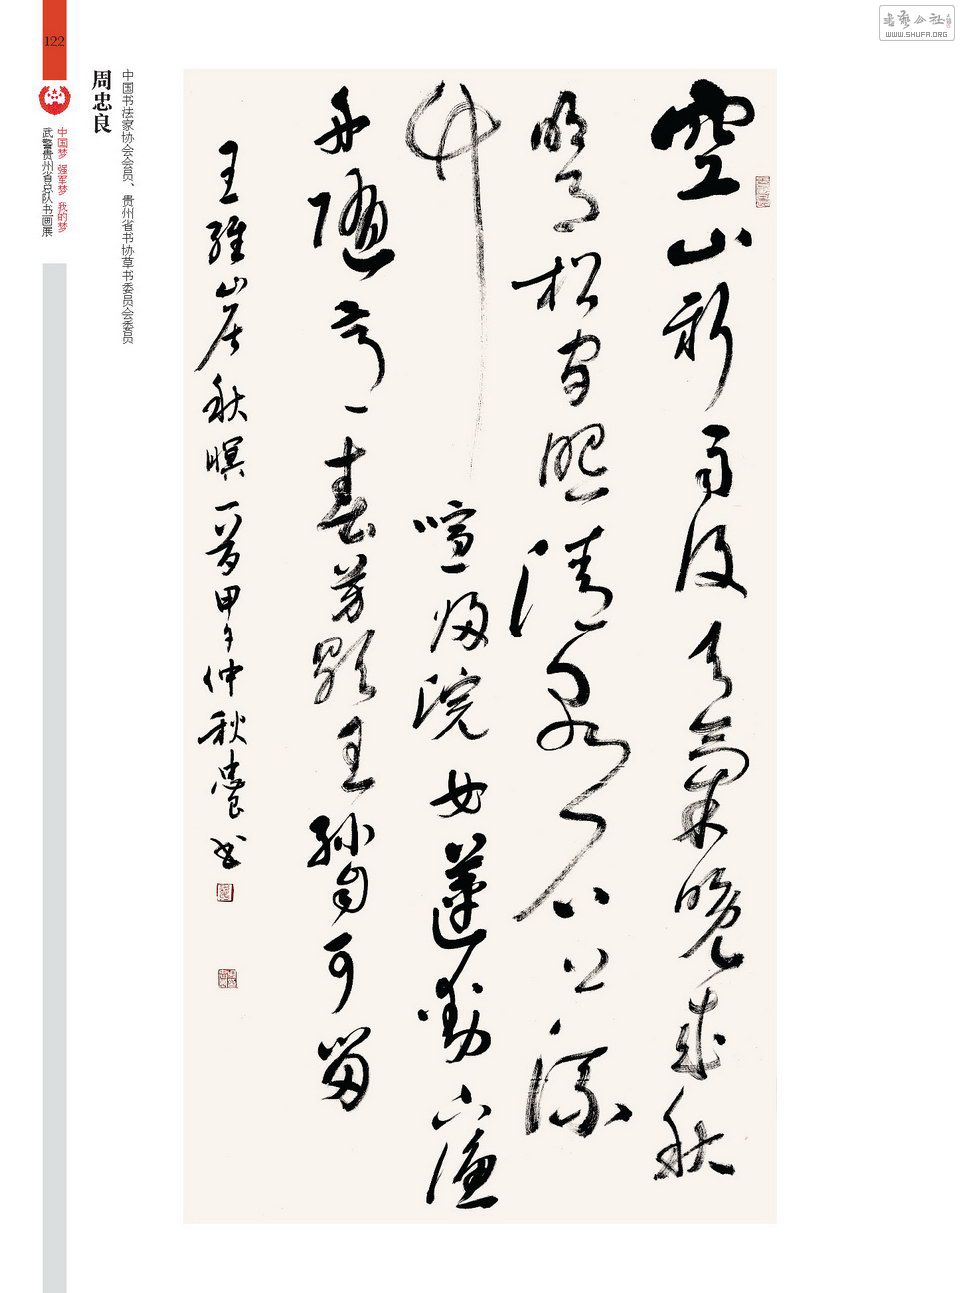 122
中国梦 强军梦 我的梦
武警贵州省总队书画展
周忠良
中国书法家协会会员、贵州省书协草书委员会委员
空山新雨後天氣晚來秋
明月松間照清泉石上流
竹喧歸浣女蓮動下漁
舟隨意春芳歇王孫自可留
王維山居秋暝一首甲午仲秋忠良书
书艺公社
WWW.SHUFA.ORG